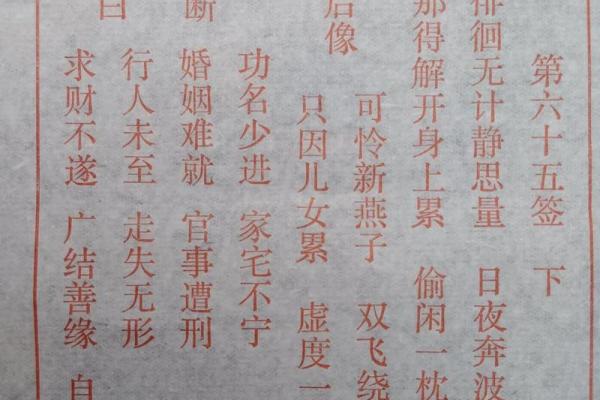 第六十五签 下
徘徊无计静思量 日夜奔波
那得解开身上累 偷闲一枕
后像
可怜新燕子 双飞绕
只因儿女累 虚度一
功名少进 家宅不宁
断
婚姻难就 官事遭刑
行人未至 走失无形
曰
求财不遂 广结善缘 自